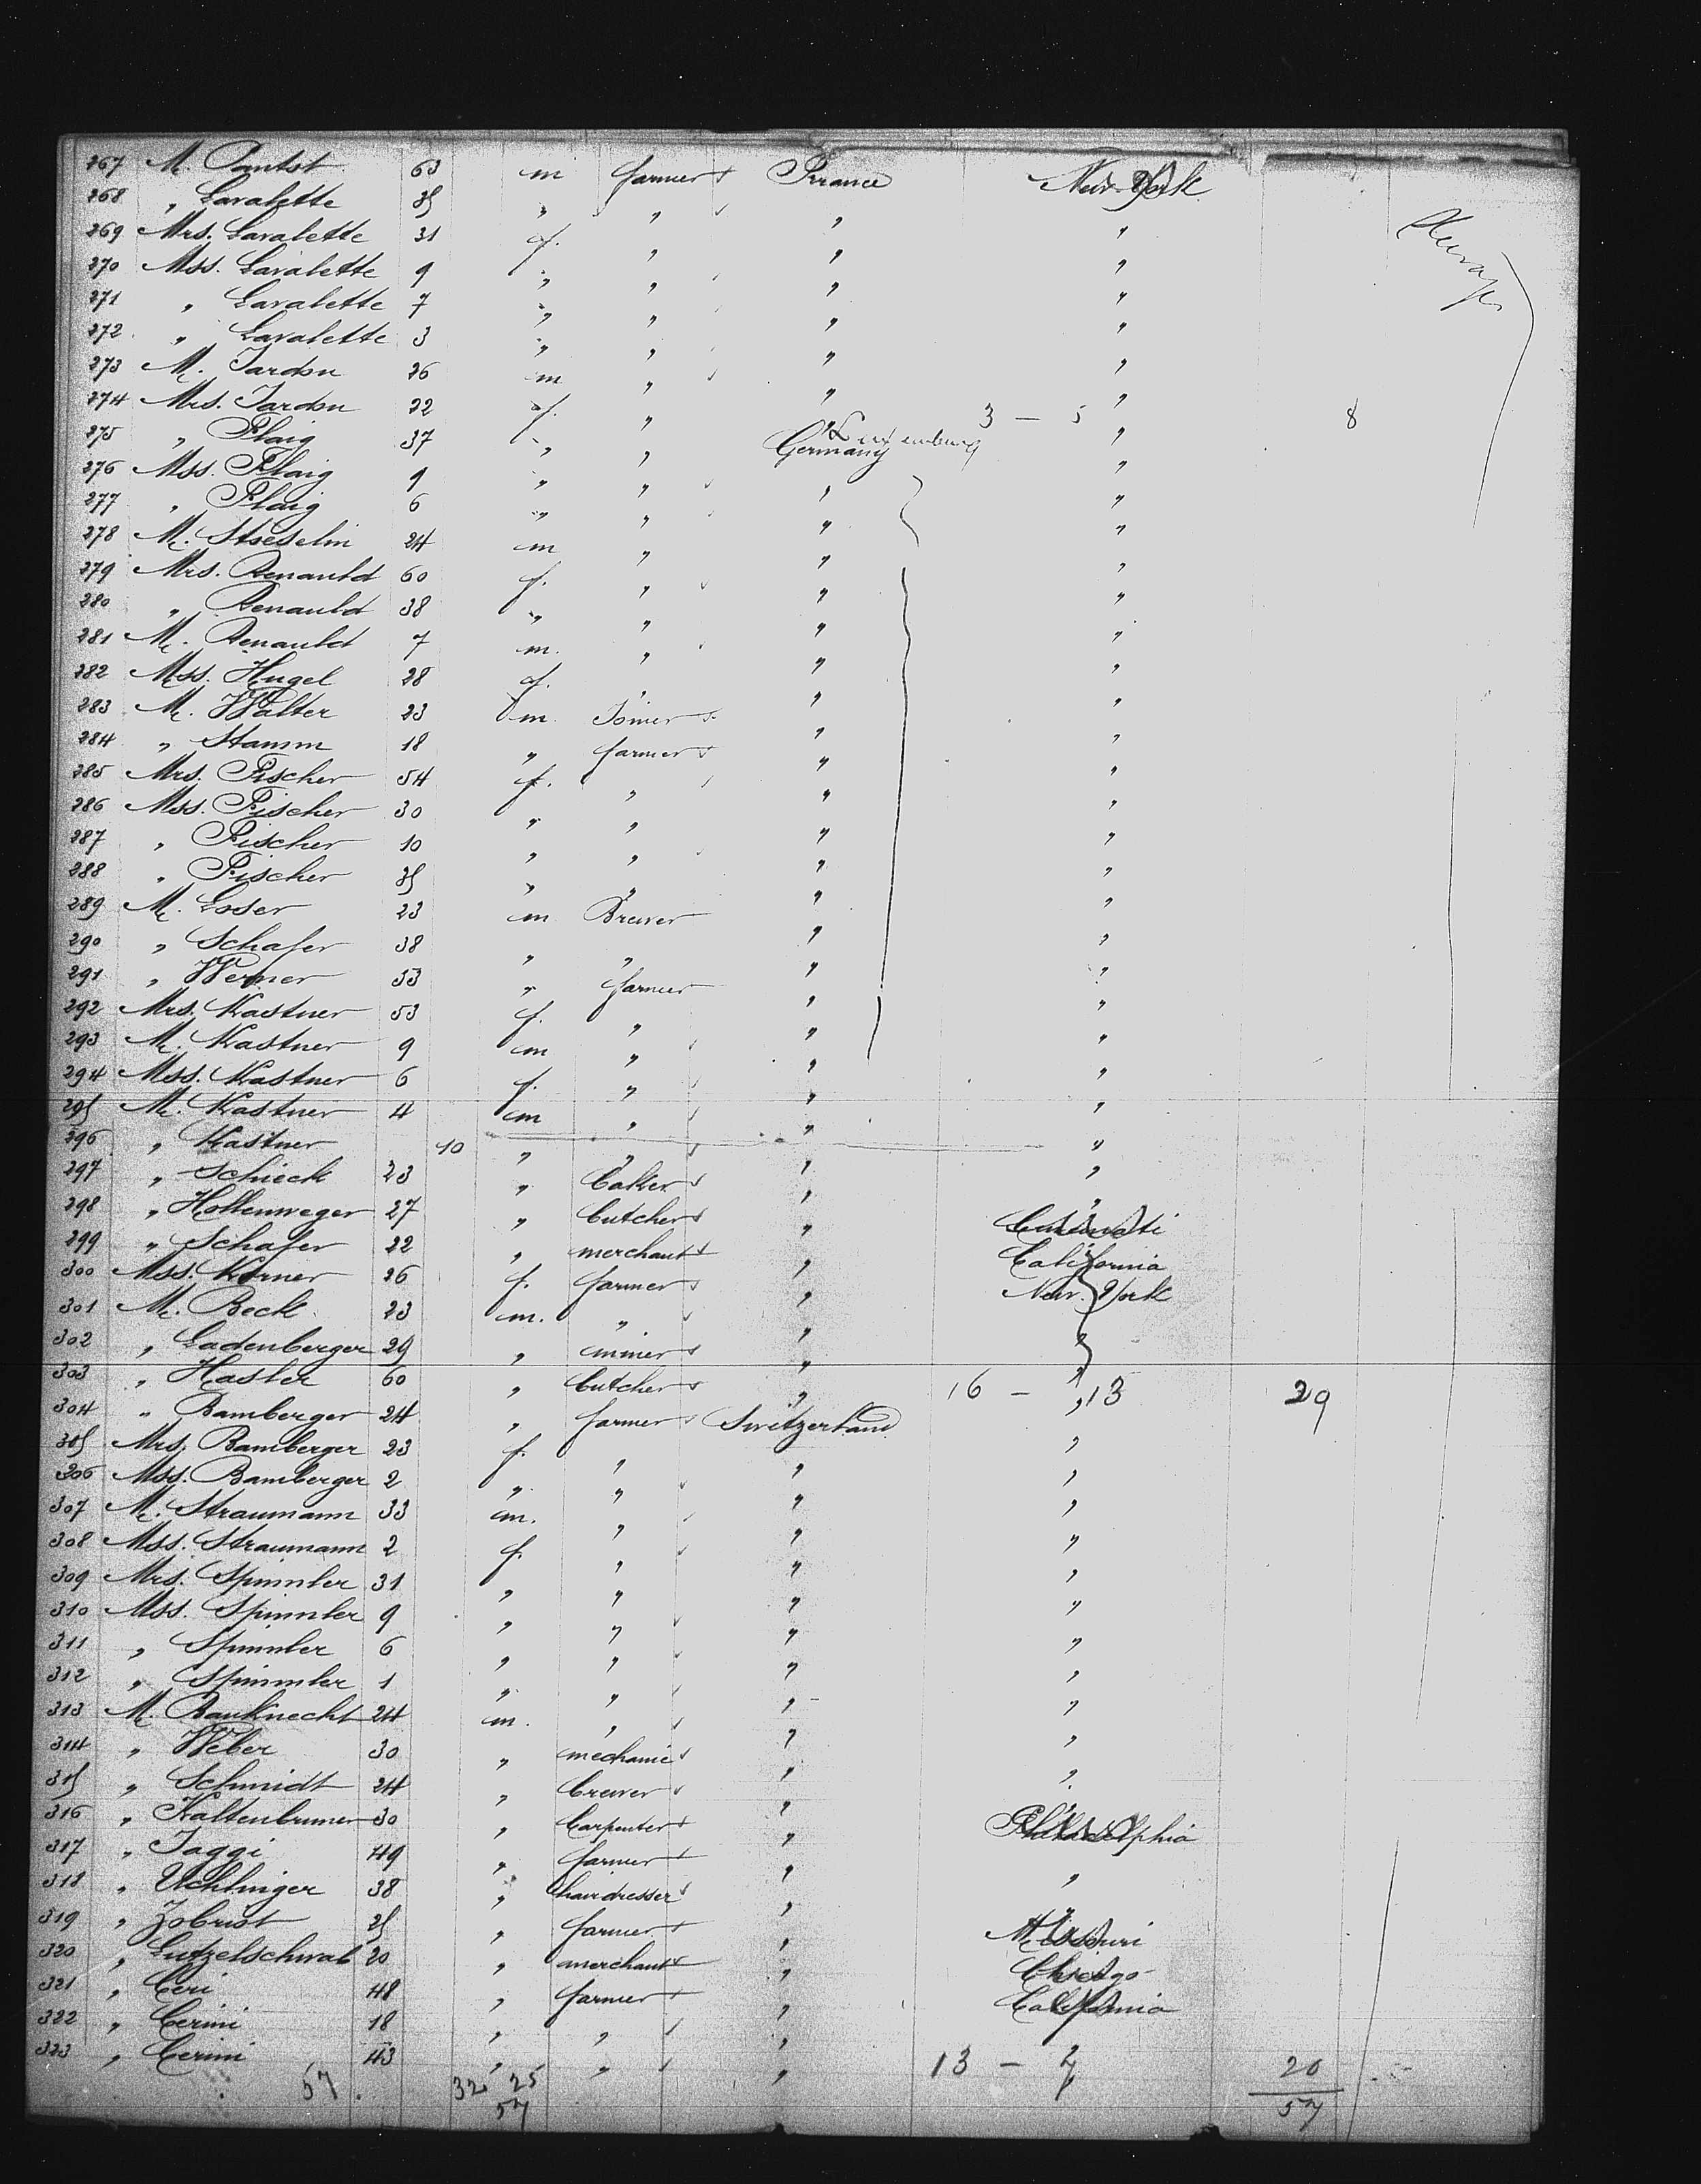 267 M. Pantst 63 m farmer France New-York
268 „ Lavalette 35 „ „ „ „
269 Mrs. Lavalette 31 f. „ „ „
270 Mss. Lavalette 9 „ „ „ „
271 „ Lavalette 7 „ „ „ „
272 „ Lavalette 3 „ „ „ „
273 M. Jardon 26 m „ „ „
274 Mrs. Jardon 22 f. „ „ 3 — 5 „ 8
275 „ Plaig 37 „ „ Germany Luxemburg „
276 Mss. Plaig 9 „ „ „ „
277 „ Plaig 6 „ „ „ „
278 M. Stoeselin 24 m „ „ „
279 Mrs. Renauld 60 f. „ „ „
280 „ Renauld 38 „ „ „ „
281 M. Renauld 7 m. „ „ „
282 Mss. Hugel 28 f. „ „ „
283 M. Walter 23 m Joiner „ „
284 „ Stamm 18 „ farmer „ „
285 Mrs. Fischer 54 f. „ „ „
286 Mss. Fischer 30 „ „ „ „
287 „ Fischer 10 „ „ „ „
288 „ Fischer 35 „ „ „ „
289 M. Loser 23 m Brewer „ „
290 „ Schafer 38 „ „ „ „
291 „ Werner 33 „ farmer „ „
292 Mrs. Kastner 53 f. „ „ „
293 M. Kastner 9 m „ „ „
294 Mss. Kastner 6 f. „ „ „
295 M. Kastner 4 m „ „ „
296 „ Kastner 10 „ „ „ „
297 „ Schieck 23 „ baker „ „
298 „ Hollenweger 27 „ butcher „ Cincinnati
299 „ Schafer 22 „ merchant „ California
300 Mss. Korner 26 f. farmer „ New-York
301 M. Beck 23 m. „ „ „
302 „ Ladenberger 29 „ miner „ „
303 „ Hasler 60 „ butcher „ 16 — 13 29
304 „ Bamberger 24 „ farmer Switzerland „
305 Mrs. Bamberger 23 f. „ „ „
306 Mss. Bamberger 2 „ „ „ „
307 M. Straumann 33 m. „ „ „
308 Mss. Straumann 2 f. „ „ „
309 Mrs. Spinnler 31 „ „ „ „
310 Mss. Spinnler 9 „ „ „ „
311 „ Spinnler 6 „ „ „ „
312 „ Spinnler 1 „ „ „ „
313 M. Bauknecht 24 m. „ „ „
314 „ Weber 30 „ mechanic „ „
315 „ Schmidt 24 „ brewer „ „
316 „ Kaltenbrunner 30 „ Carpenter „ Philadelphia
317 „ Jaggi 49 „ farmer „ „
318 „ Uchlinger 38 „ hairdresser „ „
319 „ Zobrist 25 „ farmer „ Missouri
320 „ Lutzelschwab 20 „ merchant „ Chicago
321 „ Ceri 48 „ farmer „ California
322 „ Cerini 18 „ „ „
323 „ Cerini 43 „ „ „ 13 — 7 20
57 32 25 57
57